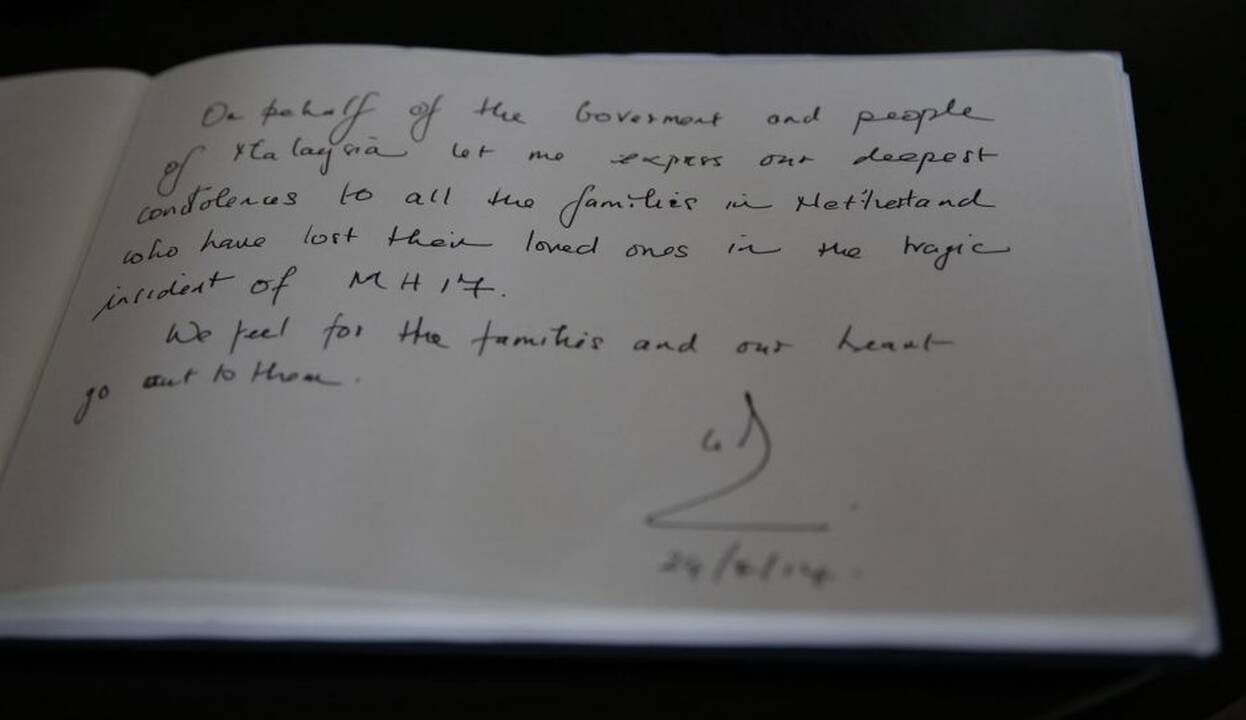 On behalf of the Goverment and people
of Malaysia let me express our deepest
condolences to all the families in Netherland
who have lost their loved ones in the tragic
incident of MH17.
We feel for the families and our heart
go out to them.